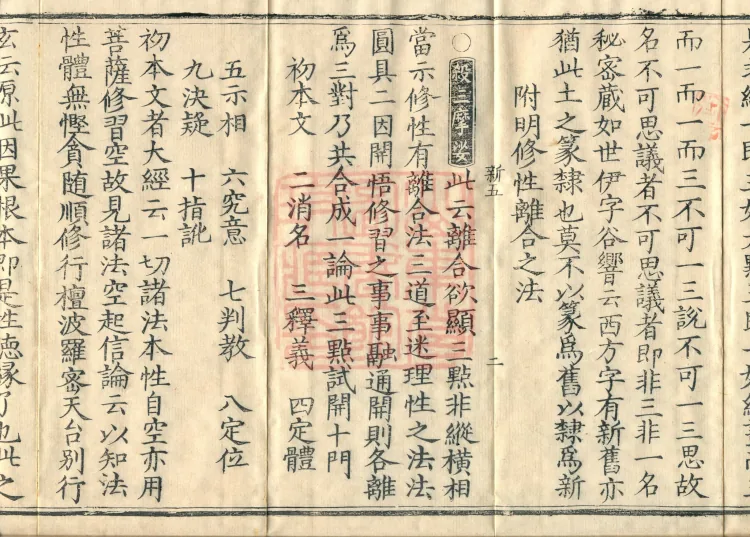 而一而一而三不可一三說不可一三思故
名不可思議者不可思議者即非三非一名
秘密蔵如世伊字谷響云西方字有新舊亦
猶此土之篆隸也莫不以篆爲舊以隸爲新
附明修性離合之法
新五
二
〇
此云離合欲顯三點非縱橫相
當示修性有離合法三道至迷理性之法法
圓具二因開悟修習之事事融通開則各離
爲三對乃共合成一論此三點試開十門
初本文 二消名 三釋義 四定體
五示相 六究意 七判教 八定位
九決疑 十指訛
初本文者大經云一切諸法本性自空亦用
菩薩修習空故見諸法空起信論云以知法
性體無慳貪随順修行檀波羅密天台別行
玄云原此因果根本即是性德緣了也此之